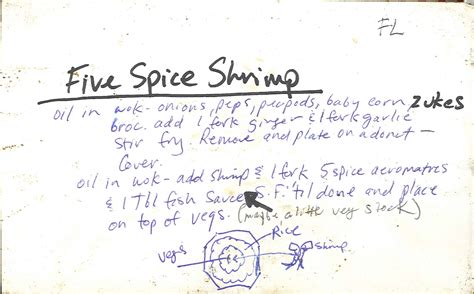 FL
Five Spice Shrimp
oil in wok - onions, peps, peapods, baby corn, zukes
broc. add 1 fork ginger & 1 fork garlic
stir fry. Remove and plate on a donut -
Cover.
oil in wok - add shrimp & 1 fork 5 spice aeromatics
& 1 Tbl fish sauce S.F. 'til done and place
on top of vegs. (maybe a little veg stock)
Rice
vegs
shrimp